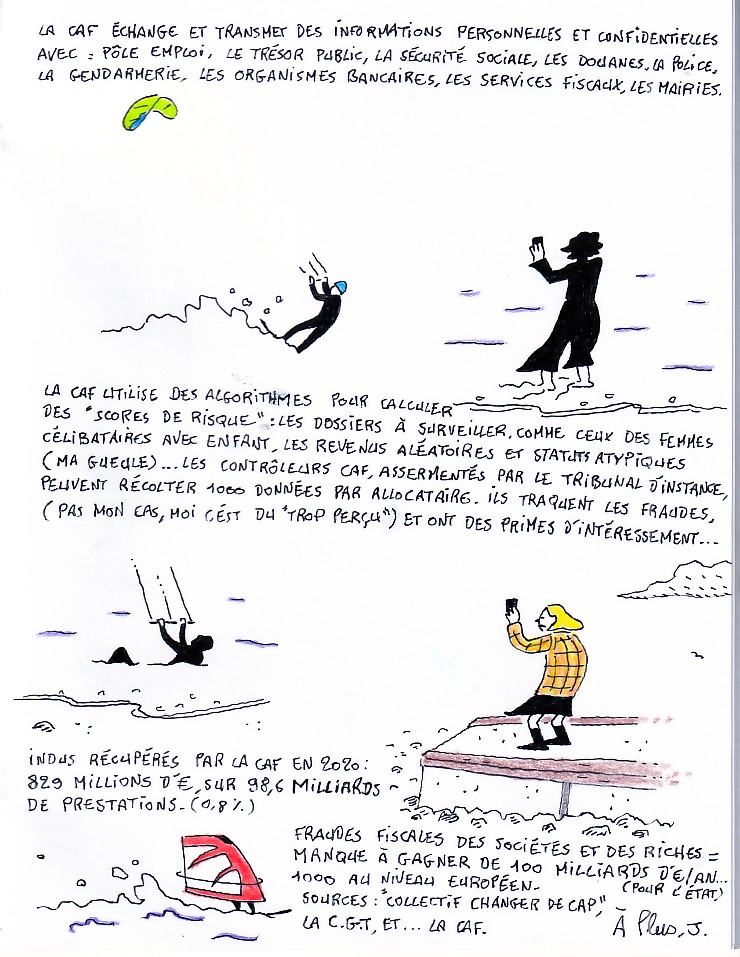 LA CAF ÉCHANGE ET TRANSMET DES INFORMATIONS PERSONNELLES ET CONFIDENTIELLES
AVEC : PÔLE EMPLOI, LE TRÉSOR PUBLIC, LA SÉCURITÉ SOCIALE, LES DOUANES, LA POLICE,
LA GENDARMERIE, LES ORGANISMES BANCAIRES, LES SERVICES FISCAUX, LES MAIRIES.
LA CAF UTILISE DES ALGORITHMES POUR CALCULER
DES "SCORES DE RISQUE" : LES DOSSIERS À SURVEILLER, COMME CEUX DES FEMMES
CÉLIBATAIRES AVEC ENFANT, LES REVENUS ALÉATOIRES ET STATUTS ATYPIQUES
(MA GUEULE)... LES CONTRÔLEURS CAF, ASSERMENTÉS PAR LE TRIBUNAL D'INSTANCE,
PEUVENT RÉCOLTER 1000 DONNÉES PAR ALLOCATAIRE. ILS TRAQUENT LES FRAUDES,
(PAS MON CAS, MOI C'ÉST DU "TROP PERÇU") ET ONT DES PRIMES D'INTÉRESSEMENT...
INDUS RÉCUPÉRÉS PAR LA CAF EN 2020 :
829 MILLIONS D'€, SUR 98,6 MILLIARDS
DE PRESTATIONS. (0,8%)
FRAUDES FISCALES DES SOCIÉTÉS ET DES RICHES =
MANQUE À GAGNER DE 100 MILLIARDS D'€/AN...
1000 AU NIVEAU EUROPÉEN. (POUR L'ÉTAT)
SOURCES : "COLLECTIF CHANGER DE CAP",
LA C.G.T, ET... LA CAF. À Plus, J.